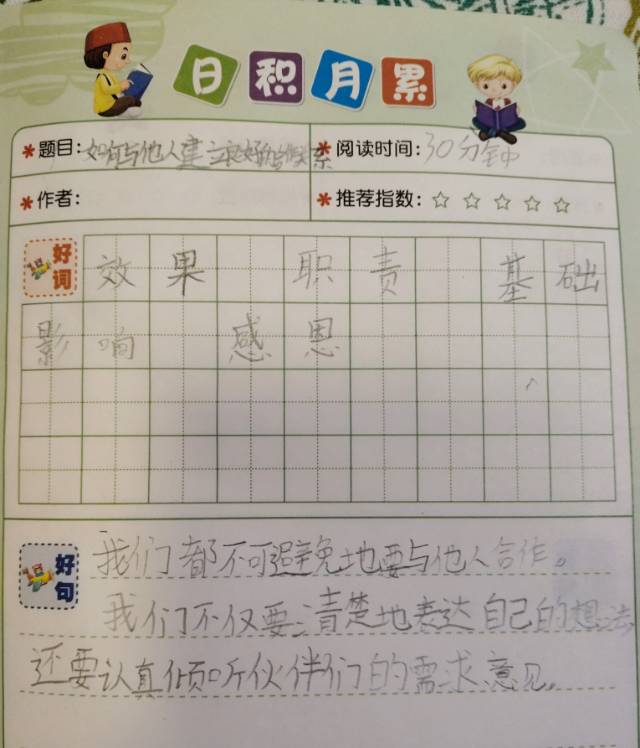 日积月累
题目：如何与他人建立良好的合作关系 阅读时间：30分钟
作者： 推荐指数：☆☆☆☆☆
好词 效果 职责 基础
影响 感恩
好句 我们都不可避免地要与他人合作。
我们不仅要清楚地表达自己的想法
还要认真倾听伙伴们的需求意见。